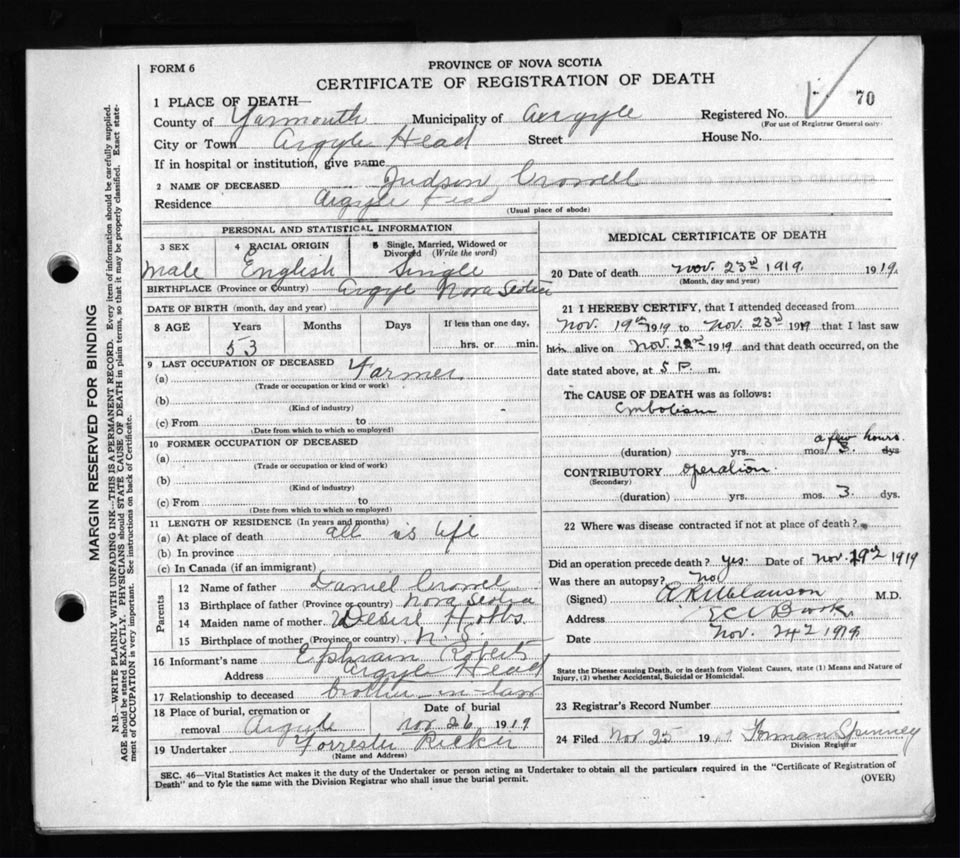 FORM 6
PROVINCE OF NOVA SCOTIA
CERTIFICATE OF REGISTRATION OF DEATH
70
1 PLACE OF DEATH—
County of Yarmouth Municipality of Argyle Registered No.
(For use of Registrar General only)
City or Town Argyle Head Street House No.
If in hospital or institution, give name
2 NAME OF DECEASED Judson Crowell
Residence Argyle Head
(Usual place of abode)
PERSONAL AND STATISTICAL INFORMATION
3 SEX 4 RACIAL ORIGIN 5 Single, Married, Widowed or Divorced (Write the word)
Male English Single
BIRTHPLACE (Province or Country) Argyle Nova Scotia
DATE OF BIRTH (month, day and year)
8 AGE Years Months Days If less than one day,
53 hrs. or min.
9 LAST OCCUPATION OF DECEASED
(a) Farmer
(Trade or occupation or kind or work)
(b)
(Kind of industry)
(c) From to
(Date from which to which so employed)
10 FORMER OCCUPATION OF DECEASED
(a)
(Trade or occupation or kind of work)
(b)
(Kind of industry)
(c) From to
(Date from which to which so employed)
11 LENGTH OF RESIDENCE (In years and months)
(a) At place of death all is life
(b) In province
(c) In Canada (if an immigrant)
Parents
12 Name of father Daniel Crowell
13 Birthplace of father (Province or country) Nova Scotia
14 Maiden name of mother Desire Hobbs
15 Birthplace of mother (Province or country) N.S.
16 Informant's name Ephraim Roberts
Address Argyle Head
17 Relationship to deceased brother-in-law
18 Place of burial, cremation or removal Argyle
Date of burial Nov 26 1919
19 Undertaker Forrester Ricker
(Name and Address)
MEDICAL CERTIFICATE OF DEATH
20 Date of death Nov. 23rd 1919. 1919.
(Month, day and year)
21 I HEREBY CERTIFY, that I attended deceased from
Nov. 19th 1919 to Nov. 23rd 1919 that I last saw
him alive on Nov. 22nd 1919 and that death occurred, on the
date stated above, at 5 P. m.
The CAUSE OF DEATH was as follows:
Embolism
a few hours.
(duration) yrs. mos. dys
CONTRIBUTORY operation.
(Secondary)
(duration) yrs. mos. 3 dys.
22 Where was disease contracted if not at place of death?
Did an operation precede death? Yes. Date of Nov. 19th 1919
Was there an autopsy? no
(Signed) M.D.
Address
Date Nov. 24th 1919
State the Disease causing Death, or in death from Violent Causes, state (1) Means and Nature of
Injury, (2) whether Accidental, Suicidal or Homicidal.
23 Registrar's Record Number
24 Filed Nov 25 19 Spinney
Division Registrar
SEC. 46—Vital Statistics Act makes it the duty of the Undertaker or person acting as Undertaker to obtain all the particulars required in the "Certificate of Registration of
Death" and to fyle the same with the Division Registrar who shall issue the burial permit.
(OVER)
MARGIN RESERVED FOR BINDING
N.B.—WRITE PLAINLY WITH UNFADING INK—THIS IS A PERMANENT RECORD. Every item of information should be carefully supplied.
AGE should be stated EXACTLY. PHYSICIANS should STATE CAUSE OF DEATH in plain terms, so that it may be properly classified. Exact state-
ment of OCCUPATION is very important. See instructions on back of Certificate.